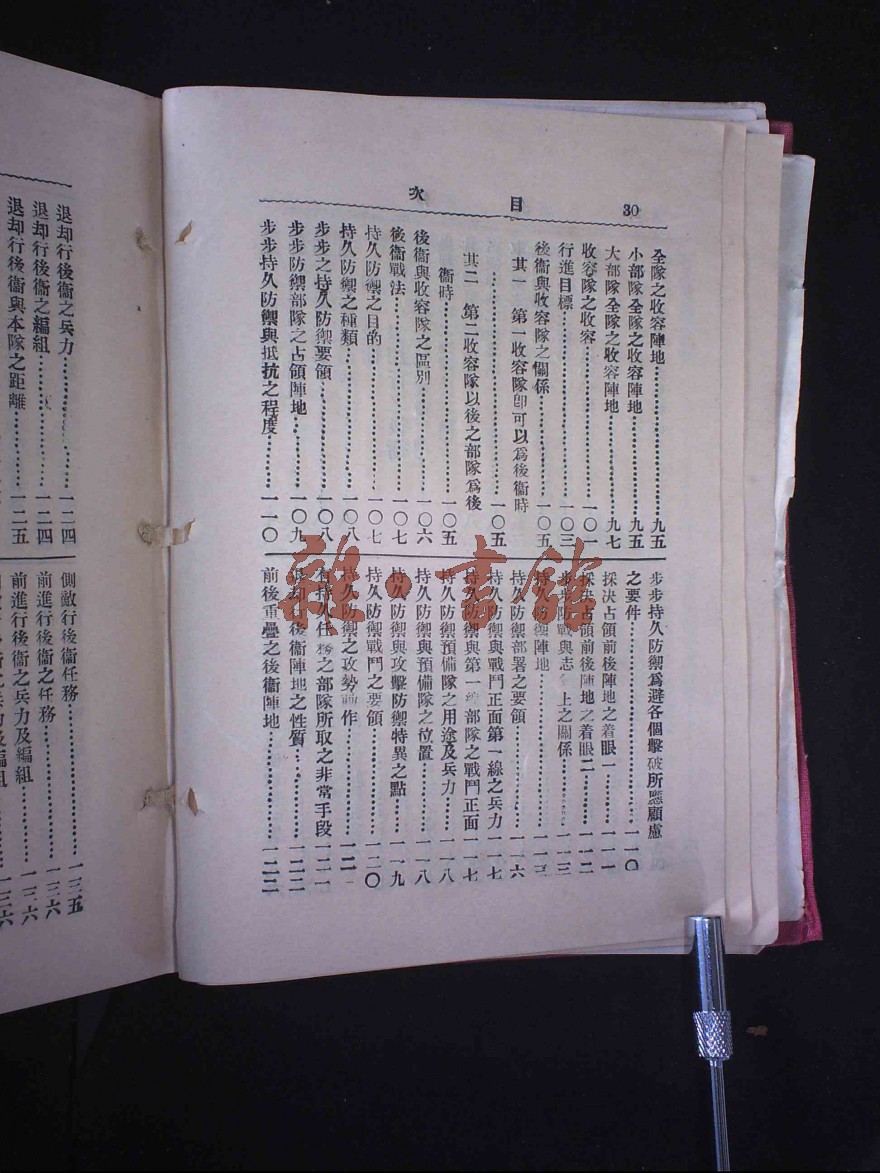 30 目次
全隊之收容陣地……九五
小部隊全隊之收容陣地……九五
大部隊全隊之收容陣地……九七
收容隊之收容……一〇一
行進目標……一〇三
後衞與收容隊之關係……一〇五
其一 第一收容隊卽可以爲後衞時
……一〇五
其二 第二收容隊以後之部隊爲後
衞時……一〇五
後衞與收容隊之區別……一〇六
後衞戰法……一〇七
持久防禦之目的……一〇七
持久防禦之種類……一〇八
步步之持久防禦要領……一〇八
步步防禦部隊之占領陣地……一〇九
步步持久防禦與抵抗之程度……一一〇
步步持久防禦爲避各個擊破所應顧慮
之要件……一一〇
採決占領前後陣地之着眼一……一一一
採決占領前後陣地之着眼二……一一二
步步防戰與志 上之關係……一一三
持久防禦陣地……一一三
持久防禦部署之要領……一一六
持久防禦與戰鬥正面第一線之兵力……一一七
持久防禦與第一線部隊之戰鬥正面……一一七
持久防禦預備隊之用途及兵力……一一八
持久防禦與預備隊之位置……一一八
持久防禦與攻擊防禦特異之點……一一九
持久防禦戰鬥之要領……一二〇
持久防禦之攻勢動作……一二一
有持久任務之部隊所取之非常手段……一二一
退却行後衞陣地之性質……一二二
前後重疊之後衞陣地……一二二
退却行後衞之兵力……一二四
退却行後衞之編組……一二四
退却行後衞與本隊之距離……一二五
側敵行後衞任務……一三五
前進行後衞之任務……一三六
前進行後衞之兵力及編組……一三六
雜·書館